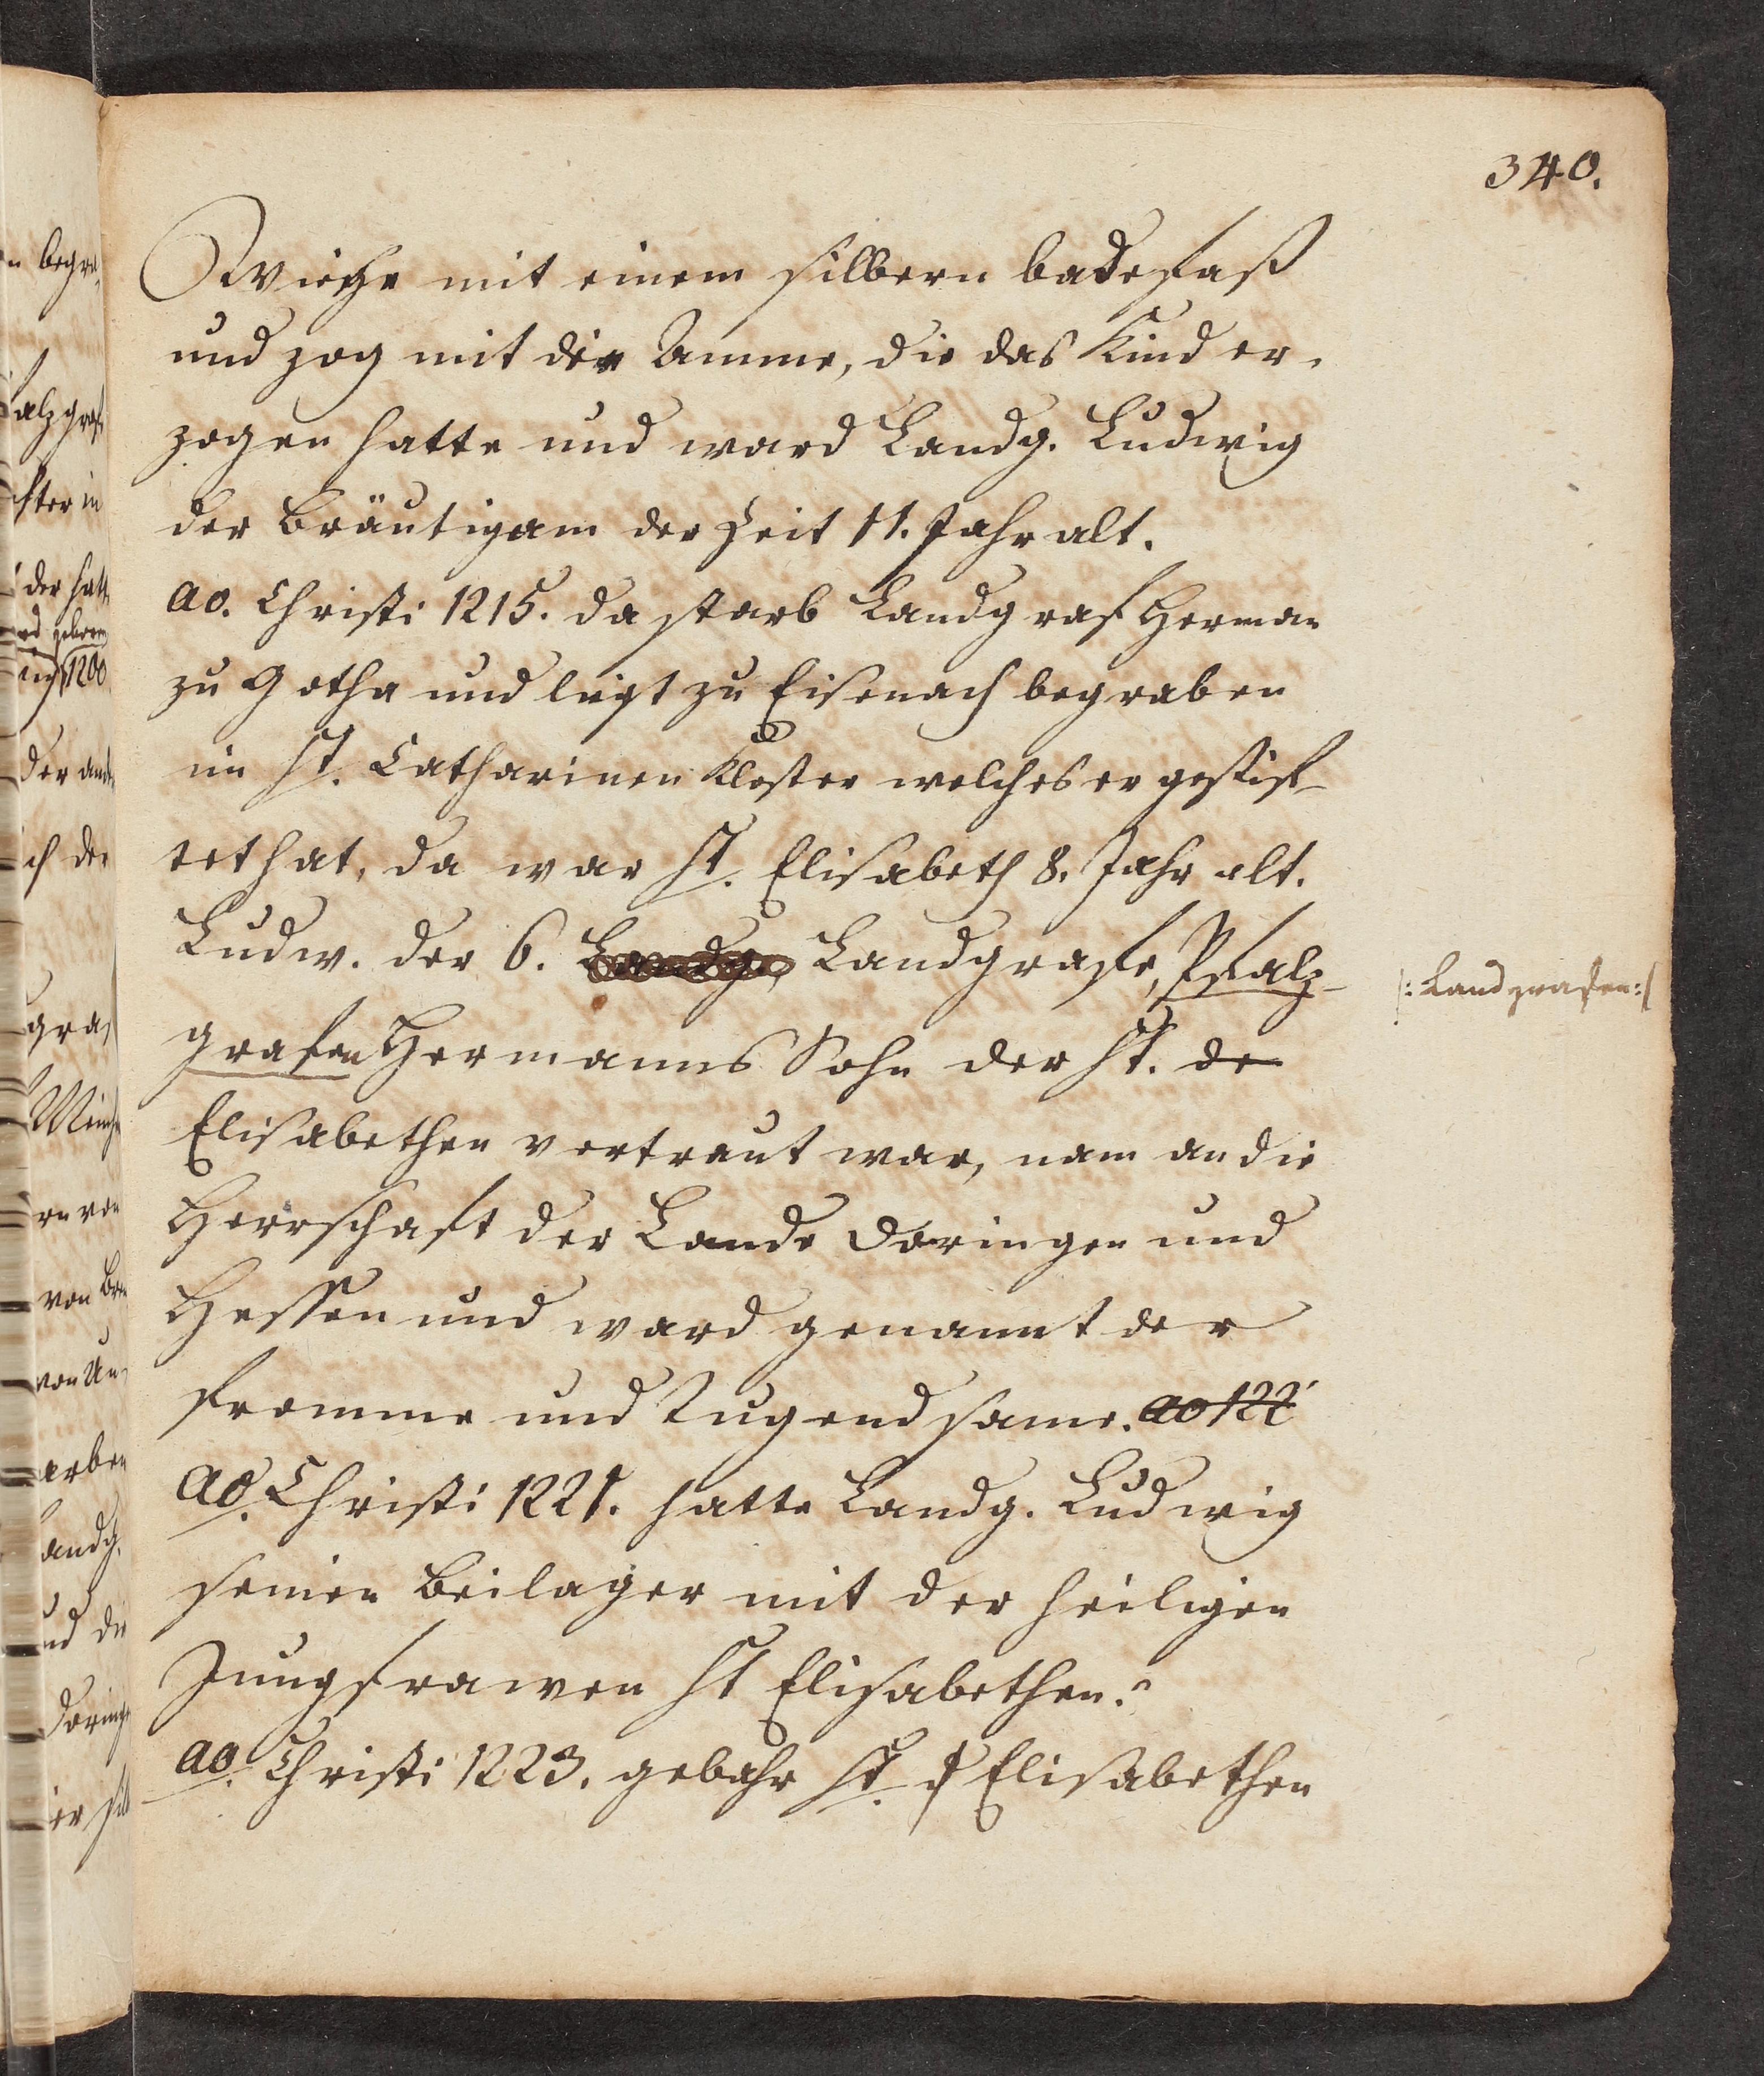 340.
Wiehe mit einem silbern badefaß
und zog mit der Amme, die das Kind er-
zogen hatte und ward Landg. Ludwig
der Bräutigam der Zeit 11. Jahr alt.
Ao. Christi 1215. da starb Landgraf Herman
zu Gotha und liegt zu Eisenach begraben
im St. Catharinen Kloster welches er gestif-
tet hat, da war St. Elisabeth 8. Jahr alt.
Ludw. der 6. Landg. Landgrafe, Pfalz-
|: Landgrafen :|
grafen Hermanns Sohn der St. de
Elisabethen vertraut war, nam an die
Herrschaft der Lande Doringen und
Hessen und ward genannt der
fromme und Tugendsame. ao 122
Ao. Christi 1221. hatte Landg. Ludwig
seinen Beilager mit der heiligen
Jungfrawen St Elisabethen.
ao. Christi 1223. gebahr St. Elisabethen